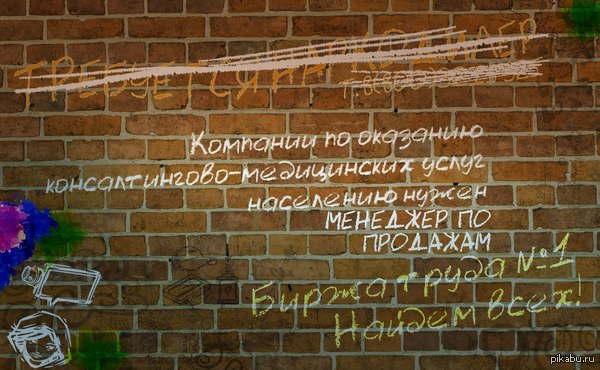 ТРЕБУЕТСЯ НАРКОДИЛЕР
Компании по оказанию
консалтингово-медицинских услуг
населению нужен
МЕНЕДЖЕР ПО
ПРОДАЖАМ
Биржа труда №1
Найдем всех!
pikabu.ru